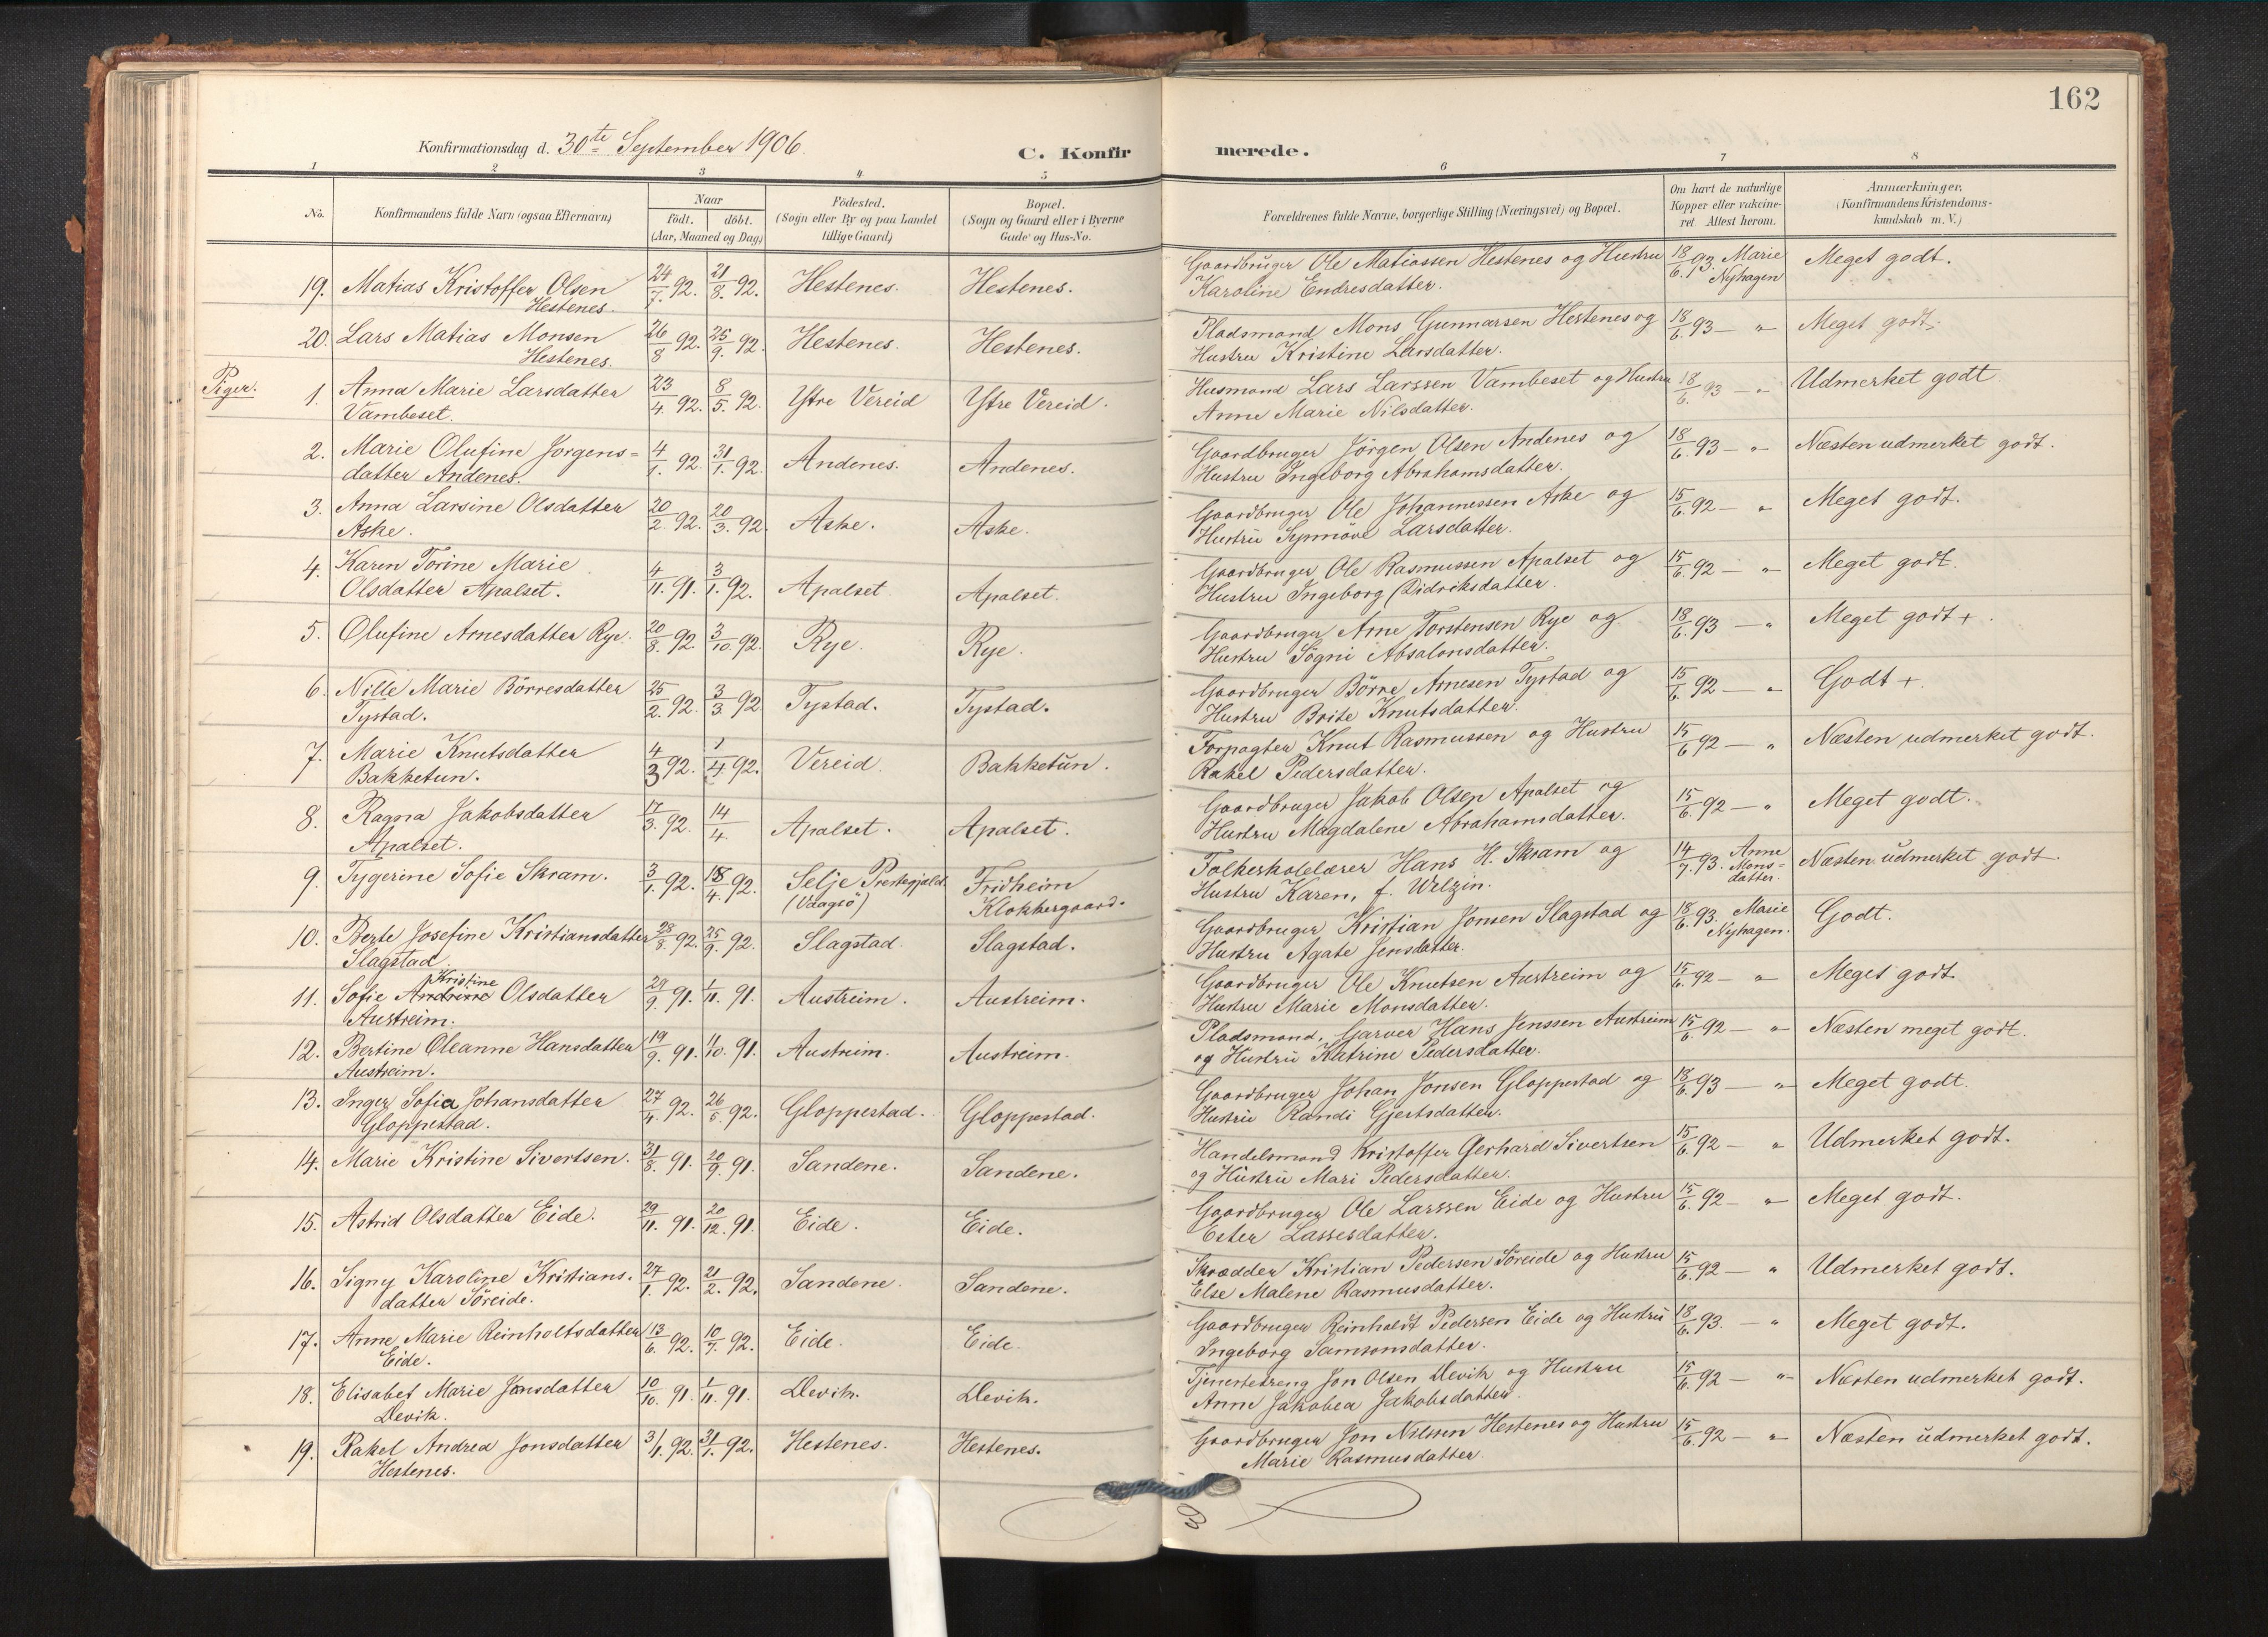 162
Konfirmationsdag d. 30te September 1906.
C. Konfirmerede.
1 2 3 4 5 6 7 8
No.
Konfirmandens fulde Navn (ogsaa Efternavn)
Naar
födt. döbt.
(Aar, Maaned og Dag)
Födested.
(Sogn eller By og paa Landet
tillige Gaard)
Bopæl.
(Sogn og Gaard eller i Byerne
Gade og Hus-No.
Forældrenes fulde Navne, borgerlige Stilling (Næringsvei) og Bopæl.
Om havt de naturlige
Kopper eller vakcine-
ret Attest herom.
Anmærkninger.
(Konfirmandens Kristendoms-
kundskab m. V.)
19. Matias Kristoffer Olsen 24/7. 92. 21/8. 92. Hestenes. Hestenes. Gaardbruger Ole Matiassen Hestenes og Hustru 18/6. 93. Marie Meget godt.
Hestenes. Karoline Endresdatter. Nyhagen
20. Lars Matias Monsen 26/8 92. 25/9. 92. Hestenes. Hestenes. Pladsmand Mons Gunnarsen Hestenes og 18/6. 93 — " Meget godt.
Hestenes. Hustru Kristine Larsdatter.
Piger.
1. Anna Marie Larsdatter 23/4 92. 8/5. 92. Ytre Vereid Ytre Vereid. Husmand Lars Larssen Vambeset og Hustru 18/6. 93 — " Udmerket godt
Vambeset. Anne Marie Nilsdatter.
2. Marie Olufine Jorgens= 4/1. 92. 31/1. 92. Andenes. Andenes. Gaardbruger Jörgen Olsen Andenes og 18/6. 93 — " Næsten udmerket godt.
datter Andenes. Hustru Ingeborg Abrahamsdatter.
3. Anna Larsine Olsdatter 20/2. 92. 20/3. 92. Aske. Aske. Gaardbruger Ole Johannessen Aske og 15/6. 92 — " Meget godt.
Aske. Hustru Synnöve Larsdatter.
4. Karen Torine Marie 4/11. 91. 3/1. 92. Apalset. Apalset. Gaardbruger Ole Rasmussen Apalset og 15/6. 92 — " Meget godt.
Olsdatter Apalset. Hustru Ingeborg Didriksdatter.
5. Olufine Arnesdatter Rye. 20/8. 92. 3/10. 92. Rye. Rye. Gaardbruger Arne Torstensen Rye og 18/6. 93 — " Meget godt +.
Hustru Sögni Absalonsdatter.
6. Nille Marie Börresdatter 25/2. 92. 3/3. 92 Tystad. Tystad. Gaardbruger Börre Arnesen Tystad og 15/6. 92 — " Godt +.
Tystad. Hustru Brite Knutsdatter.
7. Marie Knutsdatter 4/3 92. 1/4 92. Vereid. Bakketun. Forpagter Knut Rasmussen og Hustru 15/6 92 — " Næsten udmerket godt.
Bakketun. Rakel Pedersdatter.
8. Ragna Jakobsdatter 17/3. 92. 14/4. Apalset. Apalset. Gaardbruger Jakob Olsen Apalset og 15/6. 92 — " Meget godt.
Apalset. Hustru Magdalene Abrahamsdatter.
9. Tygerine Sofie Skram. 3/1. 92. 18/4. 92. Selje Prestegjeld. Fridheim Folkeskolelærer Hans H. Skram og 14/7. 93. Anne Næsten udmerket godt.
(Vaagsö) Klokkergaard. Hustru Karen, f. Welzin. Mons=
datter.
10. Berte Josefine Kristiansdatter 28/8. 92. 25/9. 92. Slagstad. Slagstad. Gaardbruger Kristian Jonsen Slagstad og 18/6. 93. Marie Godt.
Slagstad. Hustru Agate Jensdatter. Nyhagen.
Kristine
11. Sofie Andrine Olsdatter 29/9. 91. 1/11. 91. Austreim. Austreim. Gaardbruger Ole Knutsen Austreim og 15/6. 92 — " Meget godt
Austreim. Hustru Marie Monsdatter.
12. Bertine Oleanne Hansdatter 19/9. 91. 11/10. 91. Austreim. Austreim. Pladsmand, Garver Hans Jenssen Austreim 15/6. 92 — " Næsten meget godt.
Austreim. og Hustru Katrine Pedersdatter.
13. Inger Sofia Johansdatter 27/4. 92. 26/5. 92. Gloppestad. Gloppestad. Gaardbruger Johan Jonsen Gloppestad og 18/6. 93 — " Meget godt.
Gloppestad. Hustru Randi Gjertsdatter.
14. Marie Kristine Sivertsen. 31/8. 91. 20/9. 91. Sandene. Sandene. Handelsmand Kristoffer Gerhard Sivertsen 15/6. 92 — " Udmerket godt.
og Hustru Mari Pedersdatter.
15. Astrid Olsdatter Eide. 29/11. 91. 20/12. 91. Eide. Eide. Gaardbruger Ole Larssen Eide og Hustru 15/6. 92 — " Meget godt.
Ester Lassesdatter.
16. Signy Karoline Kristians. 27/1. 92. 21/2. 92. Sandene. Sandene. Skrædder Kristian Pedersen Söreide og Hustru 15/6. 92 — " Udmerket godt.
datter Söreide. Else Malene Rasmusdatter.
17. Anne Marie Reinholtsdatter 13/6. 92. 10/7. 92. Eide. Eide. Gaardbruger Reinholdt Pedersen Eide og Hustru 18/6. 93. — " Meget godt.
Eide. Ingeborg Samsonsdatter.
18. Elisabet Marie Jonsdatter 10/10. 91. 1/11. 91. Devik. Devik. Tjenestedreng Jon Olsen Devik og Hustru 15/6. 92 — " Næsten udmerket godt.
Devik. Anne Jakobea Jakobsdatter.
19. Rakel Andrea Jonsdatter 3/1. 92. 31/1. 92. Hestenes. Hestenes. Gaardbruger Jon Nilssen Hestenes og Hustru 15/6. 92 — " Næsten udmerket godt.
Hestenes. Marie Rasmusdatter